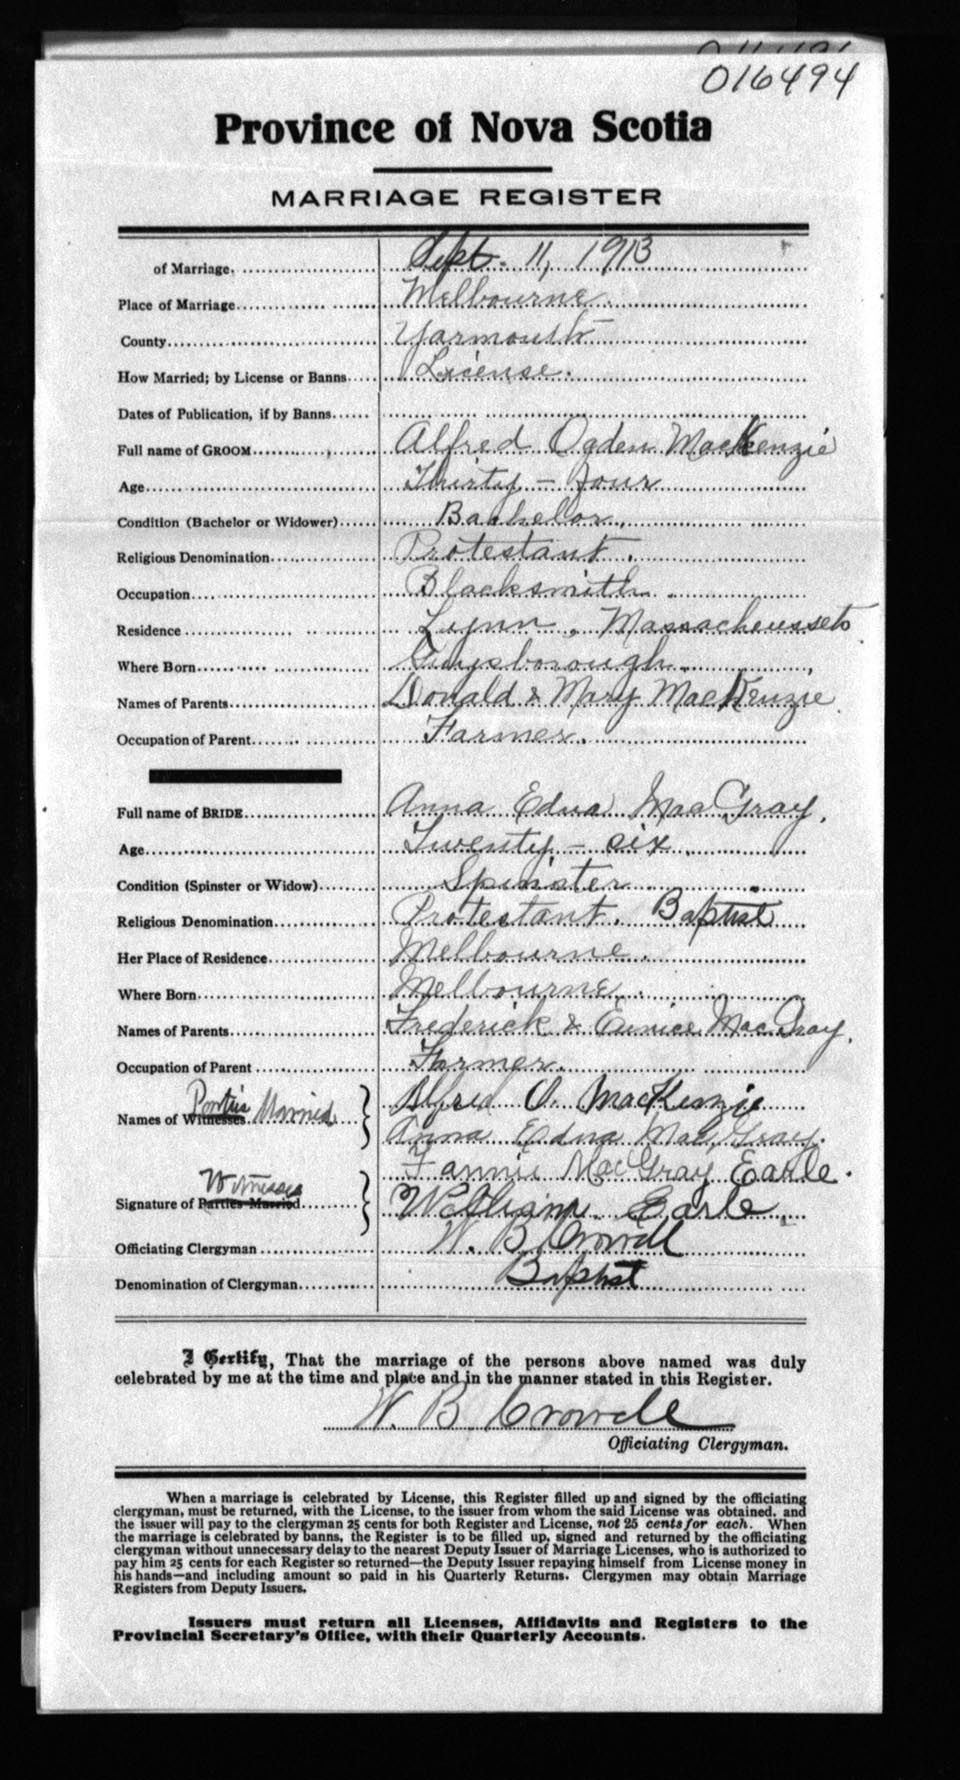 016494
Province of Nova Scotia
MARRIAGE REGISTER
of Marriage. Sept. 11, 1913
Place of Marriage Melbourne.
County Yarmouth
How Married; by License or Banns License.
Dates of Publication, if by Banns
Full name of GROOM Alfred Ogden MacKenzie
Age Thirty - four
Condition (Bachelor or Widower) Bachelor.
Religious Denomination Protestant.
Occupation Blacksmith.
Residence Lynn, Massacheussets
Where Born Guysborough
Names of Parents Donald & Mary MacKenzie
Occupation of Parent Farmer.
Full name of BRIDE Anna Edna MacGray.
Age Twenty - six.
Condition (Spinster or Widow) Spinster
Religious Denomination Protestant. Baptist
Her Place of Residence Melbourne.
Where Born Melbourne.
Names of Parents Frederick & Eunice MacGray.
Occupation of Parent Farmer.
Parties Married
Names of Witnesses Alfred O. MacKenzie
Anna Edna MacGray.
Fannie MacGray Earle.
Witnesses
Signature of Parties Married William Earle.
Officiating Clergyman W. B. Crowell
Denomination of Clergyman Baptist
I Certify, That the marriage of the persons above named was duly
celebrated by me at the time and place and in the manner stated in this Register.
W. B. Crowell
Officiating Clergyman.
When a marriage is celebrated by License, this Register filled up and signed by the officiating
clergyman, must be returned, with the License, to the issuer from whom the said License was obtained, and
the issuer will pay to the clergyman 25 cents for both Register and License, not 25 cents for each. When
the marriage is celebrated by banns, the Register is to be filled up, signed and returned by the officiating
clergyman without unnecessary delay to the nearest Deputy Issuer of Marriage Licenses, who is authorized to
pay him 25 cents for each Register so returned—the Deputy Issuer repaying himself from License money in
his hands—and including amount so paid in his Quarterly Returns. Clergymen may obtain Marriage
Registers from Deputy Issuers.
Issuers must return all Licenses, Affidavits and Registers to the
Provincial Secretary's Office, with their Quarterly Accounts.